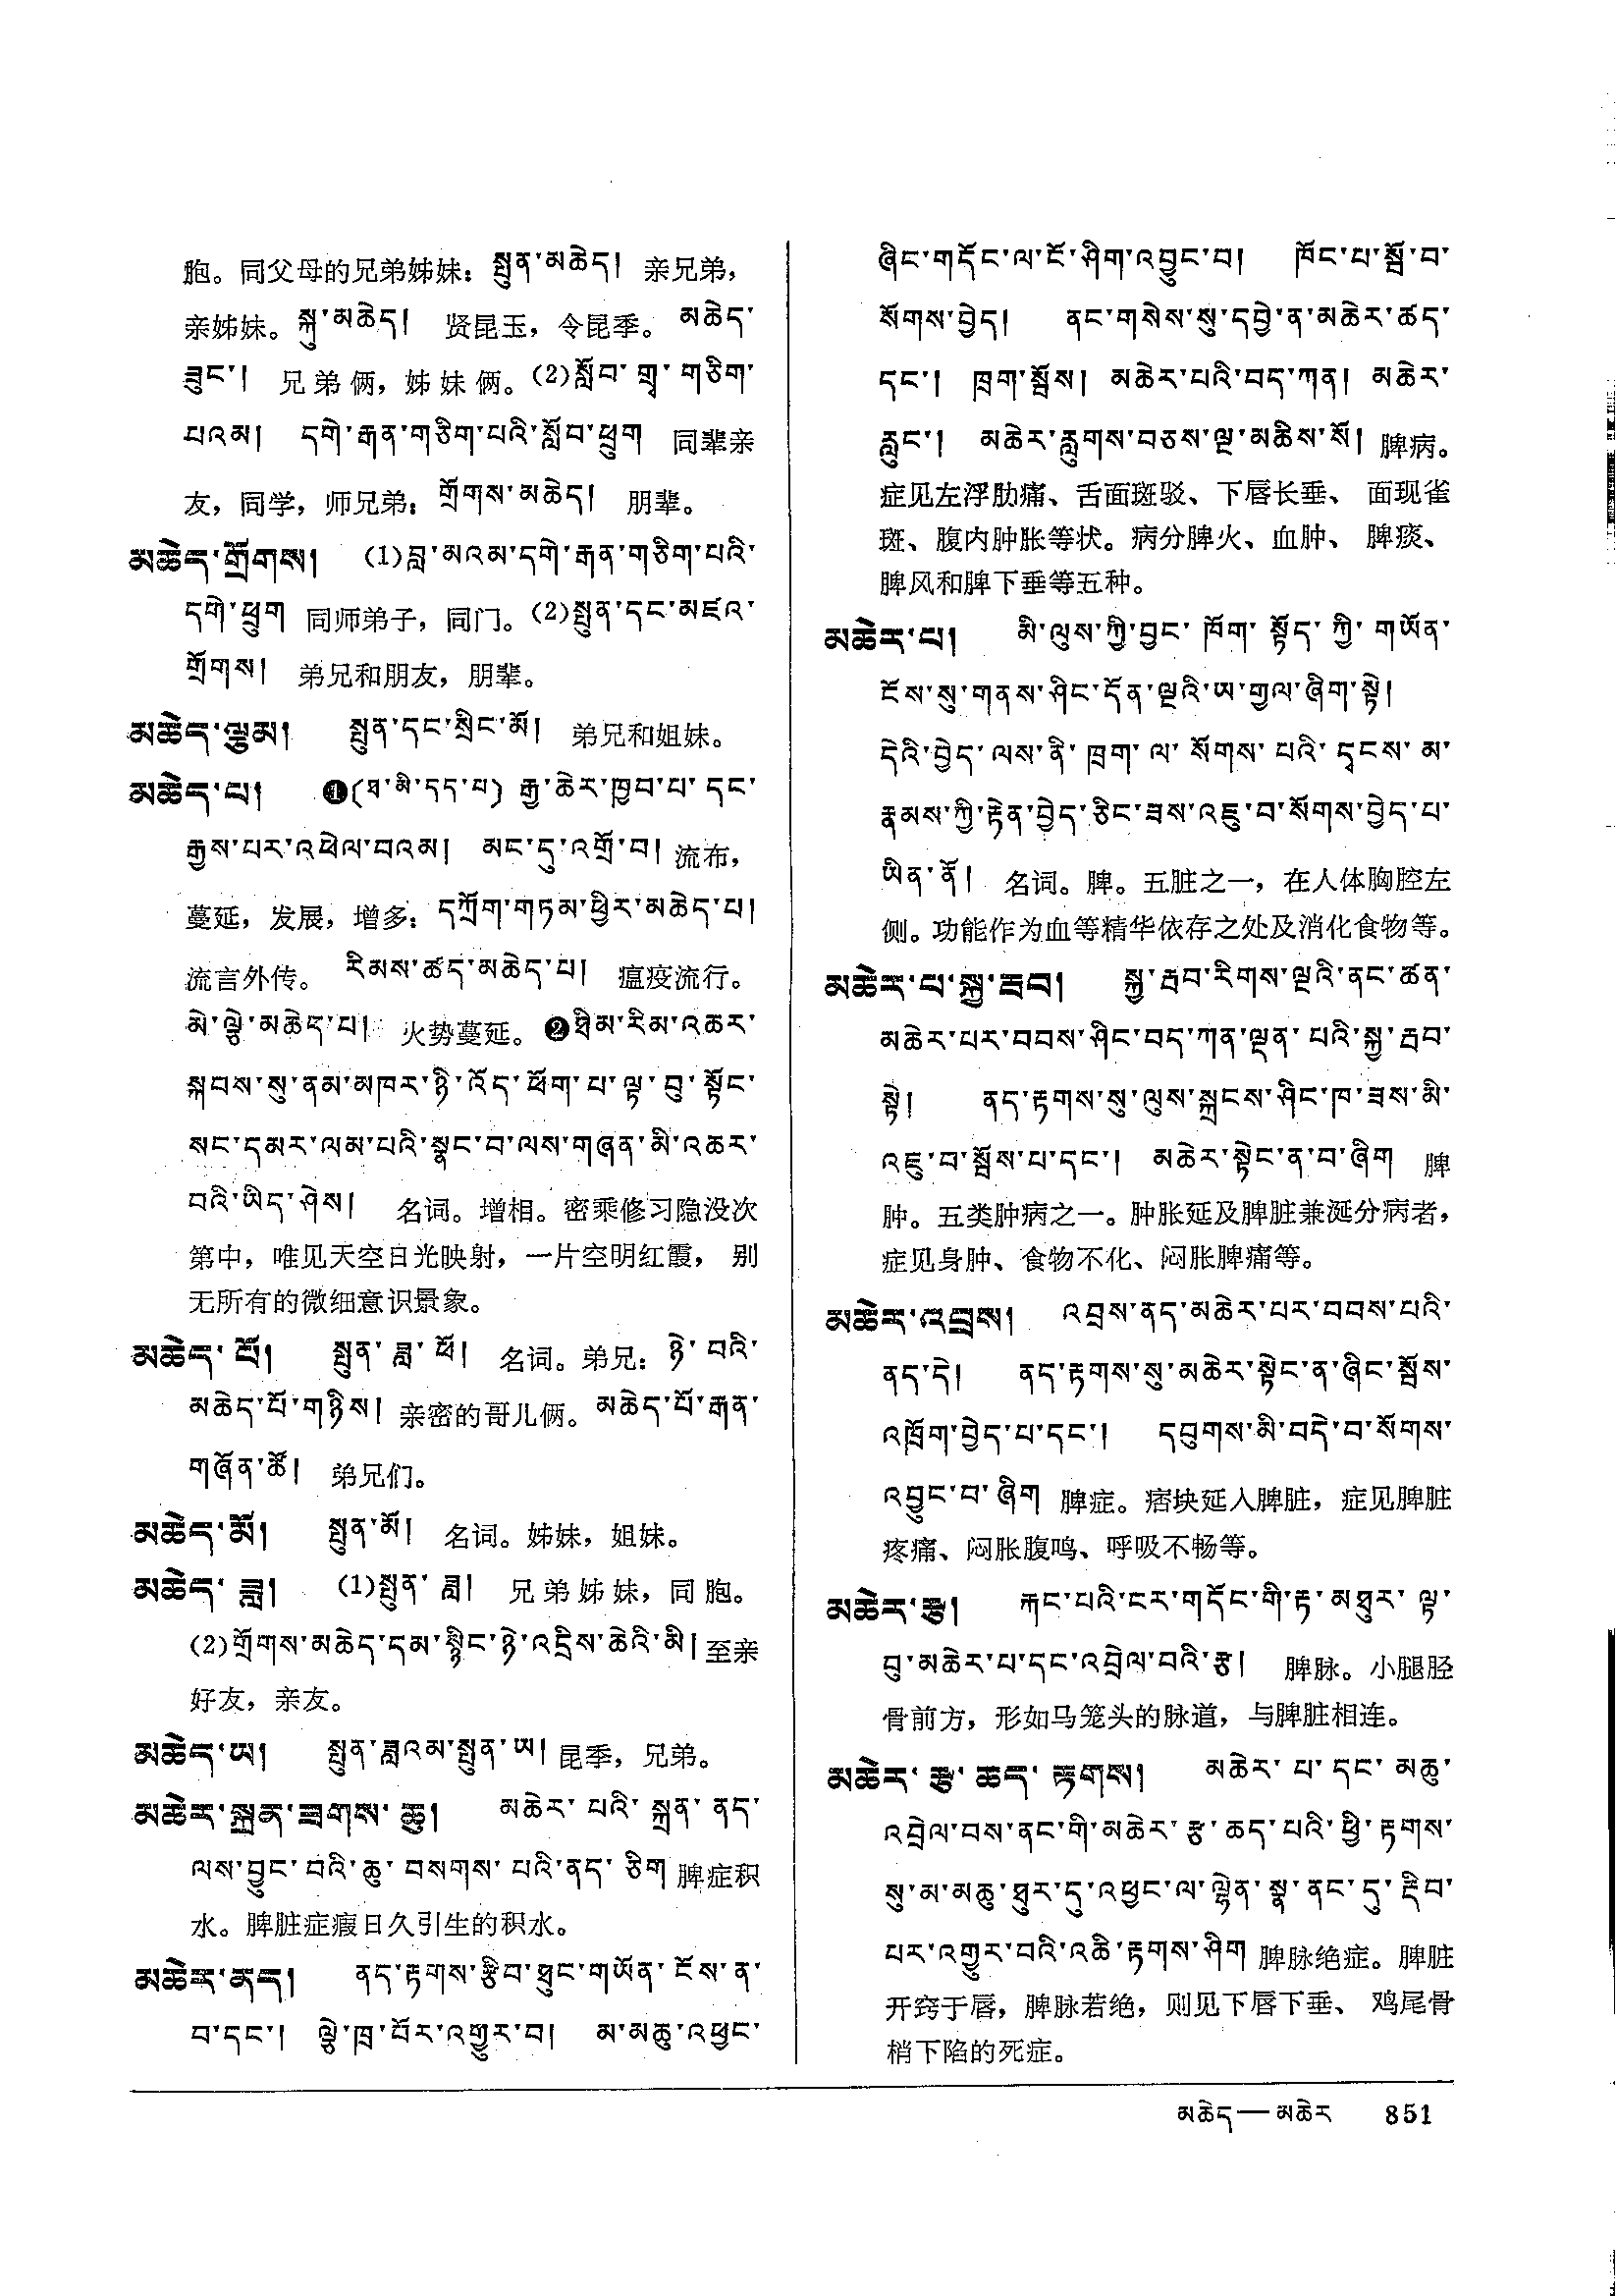 胞。同父母的兄弟姊妹：སྤུན་མཆེད།  亲兄弟，
亲姊妹。སྐུ་མཆེད།  贤昆玉，令昆季。མཆེད་
ཟུང་།  兄弟俩，姊妹俩。(2)སློབ་གྲྭ་གཅིག་
པའམ།  དགེ་རྒན་གཅིག་པའི་སློབ་ཕྲུག  同辈亲
友，同学，师兄弟：གྲོགས་མཆེད།  朋辈。
མཆེད་གྲོགས།  (1)བླ་མའམ་དགེ་རྒན་གཅིག་པའི་
དགེ་ཕྲུག 同师弟子，同门。(2)སྤུན་དང་མཛའ་
གྲོགས།  弟兄和朋友，朋辈。
མཆེད་ལྕམ།  སྤུན་དང་སྲིང་མོ།  弟兄和姐妹。
མཆེད་པ།  ❶(ཐ་མི་དད་པ) རྒྱ་ཆེར་ཁྱབ་པ་དང་
རྒྱས་པར་འཕེལ་བའམ།  མང་དུ་འགྲོ་བ། 流布，
蔓延，发展，增多：དཀྲོག་གཏམ་ཕྱིར་མཆེད་པ།
流言外传。 རིམས་ཚད་མཆེད་པ།  瘟疫流行。
མེ་ལྕེ་མཆེད་པ།  火势蔓延。❷ཐིམ་རིམ་འཆར་
སྐབས་སུ་ནམ་མཁར་ཉི་འོད་ཕོག་པ་ལྟ་བུ་སྟོང་
སང་དམར་ལམ་པའི་སྣང་བ་ལས་གཞན་མི་འཆར་
བའི་ཡིད་ཤེས།  名词。增相。密乘修习隐没次
第中，唯见天空日光映射，一片空明红霞， 别
无所有的微细意识景象。
མཆེད་པོ།  སྤུན་ཟླ་ཕོ།  名词。弟兄：ཉེ་བའི་
མཆེད་པོ་གཉིས། 亲密的哥儿俩。མཆེད་པོ་རྒན་
གཞོན་ཚོ།  弟兄们。
མཆེད་མོ།  སྤུན་མོ།  名词。姊妹，姐妹。
མཆེད་ཟླ།  (1)སྤུན་ཟླ།  兄弟姊妹，同胞。
(2)གྲོགས་མཆེད་དམ་སྙིང་ཉེ་འདྲིས་ཆེའི་མི། 至亲
好友，亲友。
མཆེད་ཡ།  སྤུན་ཟླའམ་སྤུན་ཡ། 昆季，兄弟。
མཆེར་སྐྲན་ཟགས་ཆུ།  མཆེར་པའི་སྐྲན་ནད་
ལས་བྱུང་བའི་ཆུ་བསགས་པའི་ནད་ཅིག 脾症积
水。脾脏症瘕日久引生的积水。
མཆེར་ནད།  ནད་རྟགས་རྩིབ་ཐུང་གཡོན་ངོས་ན་
བ་དང་།  ལྕེ་ཁྲ་པོར་འགྱུར་བ།  མ་མཆུ་འཕྱང་
ཞིང་གདོང་ལ་ངོ་ཤིག་འབྱུང་བ།  ཁོང་པ་སྦོ་བ་
སོགས་བྱེད།  ནང་གསེས་སུ་དབྱེ་ན་མཆེར་ཚད་
དང་།  ཁྲག་སྦོས།  མཆེར་པའི་བད་ཀན།  མཆེར་
རླུང་།  མཆེར་རླུགས་བཅས་ལྔ་མཆིས་སོ། 脾病。
症见左浮肋痛、舌面斑驳、下唇长垂、 面现雀
斑、腹内肿胀等状。病分脾火、血肿、 脾痰、
脾风和脾下垂等五种。
མཆེར་པ།  མི་ལུས་ཀྱི་བྱང་ཁོག་སྟོད་ཀྱི་གཡོན་
ངོས་སུ་གནས་ཤིང་དོན་ལྔའི་ཡ་གྱལ་ཞིག་སྟེ།
དེའི་བྱེད་ལས་ནི་ཁྲག་ལ་སོགས་པའི་དྭངས་མ་
རྣམས་ཀྱི་རྟེན་བྱེད་ཅིང་ཟས་འཇུ་བ་སོགས་བྱེད་པ་
ཡིན་ནོ།  名词。脾。五脏之一，在人体胸腔左
侧。功能作为血等精华依存之处及消化食物等。
མཆེར་པ་སྐྱ་རབ།  སྐྱ་རབ་རིགས་ལྔའི་ནང་ཚན་
མཆེར་པར་བབས་ཤིང་བད་ཀན་ལྡན་པའི་སྐྱ་རབ་
སྟེ།  ནད་རྟགས་སུ་ལུས་སྐྲངས་ཤིང་ཁ་ཟས་མི་
འཇུ་བ་སྦོས་པ་དང་།  མཆེར་སྟེང་ན་བ་ཞིག  脾
肿。五类肿病之一。肿胀延及脾脏兼涎分病者，
症见身肿、食物不化、闷胀脾痛等。
མཆེར་འབྲས།  འབྲས་ནད་མཆེར་པར་བབས་པའི་
ནད་དེ།  ནད་རྟགས་སུ་མཆེར་སྟེང་ན་ཞིང་སྦོས་
འཁྲོག་བྱེད་པ་དང་།  དབུགས་མི་བདེ་བ་སོགས་
འབྱུང་བ་ཞིག 脾症。痞块延入脾脏，症见脾脏
疼痛、闷胀腹鸣、呼吸不畅等。
མཆེར་རྩ།  རྐང་པའི་ངར་གདོང་གི་རྟ་མཐུར་ལྟ་
བུ་མཆེར་པ་དང་འབྲེལ་བའི་རྩ།  脾脉。小腿胫
骨前方，形如马笼头的脉道，与脾脏相连。
མཆེར་རྩ་ཆད་རྟགས།  མཆེར་པ་དང་མཆུ་
འབྲེལ་བས་ནང་གི་མཆེར་རྩ་ཆད་པའི་ཕྱི་རྟགས་
སུ་མ་མཆུ་ཐུར་དུ་འཕྱང་ལ་ལྷེན་སྣ་ནང་དུ་རྡིབ་
པར་འགྱུར་བའི་འཆི་རྟགས་ཤིག 脾脉绝症。脾脏
开窍于唇，脾脉若绝，则见下唇下垂、 鸡尾骨
梢下陷的死症。
མཆེད—མཆེར  851